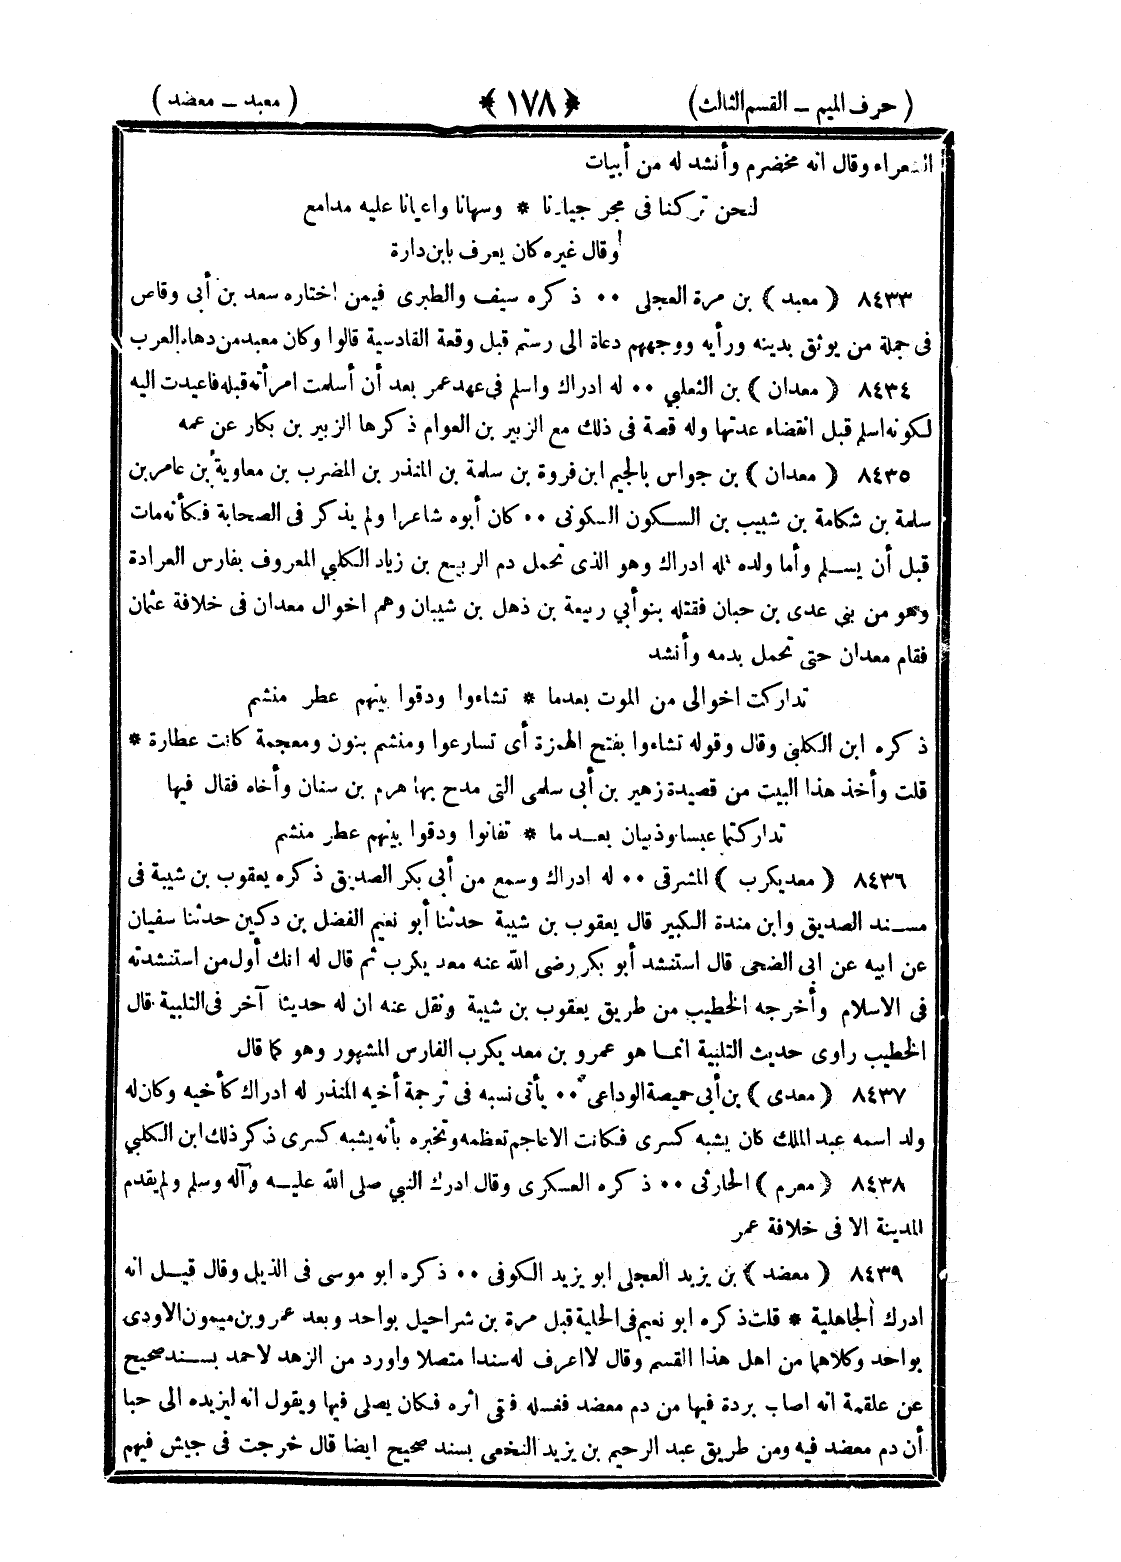 ( حرف الميم ــ القسم الثالث ) ﴿ ١٧٨ ﴾ ( معبد ــ معضد )
الشعراء وقال انه مخضرم وأنشد له من أبيات
لنحن تركنا فى مجر جيادنا * وسهانا واعيانا عليه مدامع
وقال غيره كان يعرف بابن دارة
٨٤٣٣ ( معبد ) بن مرة العجلى ٠٠ ذكره سيف والطبرى فيمن اختاره سعد بن أبى وقاص
فى جملة من يوثق بدينه ورأيه ووجههم دعاة الى رستم قبل وقعة القادسية قالوا وكان معبد من دهاة العرب
٨٤٣٤ ( معدان ) بن الثعلبي ٠٠ له ادراك واسلم فى عهد عمر بعد أن أسلمت امرأته قبله فاعيدت اليه
لكونه اسلم قبل انقضاء عدتها وله قصة فى ذلك مع الزبير بن العوام ذكرها الزبير بن بكار عن عمه
٨٤٣٥ ( معدان ) بن جواس بالجيم ابن فروة بن سلمة بن المنذر بن المضرب بن معاوية بن عامر بن
سلمة بن شكامة بن شبيب بن السكون السكونى ٠٠ كان أبوه شاعرا ولم يذكر فى الصحابة فكأنه مات
قبل أن يسلم وأما ولده فله ادراك وهو الذى تحمل دم الربيع بن زياد الكلبي المعروف بفارس العرادة
وهو من بني عدى بن حبان فقتله بنو أبي ربيعة بن ذهل بن شيبان وهم اخوال معدان فى خلافة عثمان
فقام معدان حتى تحمل بدمه وأنشد
تداركت اخوالى من الموت بعدما * تشاءوا ودقوا بينهم عطر منشم
ذكره ابن الكلبى وقال وقوله تشاءوا بفتح الهمزة أى تسارعوا ومنشم بنون ومعجمة كانت عطارة *
قلت وأخذ هذا البيت من قصيدة زهير بن أبى سلمى التى مدح بها هرم بن سنان وأخاه فقال فيها
تداركتما عبسا وذبيان بعد ما * تفانوا ودقوا بينهم عطر منشم
٨٤٣٦ ( معديكرب ) المشرقى ٠٠ له ادراك وسمع من أبى بكر الصديق ذكره يعقوب بن شيبة فى
مسند الصديق وابن مندة الكبير قال يعقوب بن شيبة حدثنا أبو نعيم الفضل بن دكين حدثنا سفيان
عن ابيه عن ابى الضحى قال استنشد أبو بكر رضى الله عنه معد يكرب ثم قال له انك أول من استنشدته
فى الاسلام وأخرجه الخطيب من طريق يعقوب بن شيبة ونقل عنه ان له حديثا آخر فى التلبية قال
الخطيب راوى حديث التلبية انما هو عمرو بن معد يكرب الفارس المشهور وهو كما قال
٨٤٣٧ ( معدى ) بن أبى حميصة الوداعى ٠٠ يأتى نسبه فى ترجمة أخيه المنذر له ادراك كأخيه وكان له
ولد اسمه عبد الملك كان يشبه كسرى فكانت الاعاجم تعظمه وتخبره بأنه يشبه كسرى ذكر ذلك ابن الكلبي
٨٤٣٨ ( معرم ) الحارثى ٠٠ ذكره العسكرى وقال ادرك النبي صلى الله عليه وآله وسلم ولم يقدم
المدينة الا فى خلافة عمر
٨٤٣٩ ( معضد ) بن يزيد العجلى ابو يزيد الكوفى ٠٠ ذكره ابو موسى فى الذيل وقال قيل انه
ادرك الجاهلية * قلت ذكره ابو نعيم فى الحلية قبل مرة بن شراحيل بواحد وبعد عمرو بن ميمون الاودى
بواحد وكلاهما من اهل هذا القسم وقال لا اعرف له سندا متصلا واورد من الزهد لاحمد بسند صحيح
عن علقمة انه اصاب بردة فيها من دم معضد فغسله فبقى اثره فكان يصلى فيها ويقول انه ليزيده الى حبا
أن دم معضد فيه ومن طريق عبد الرحيم بن يزيد النخعى بسند صحيح ايضا قال خرجت فى جيش فيهم